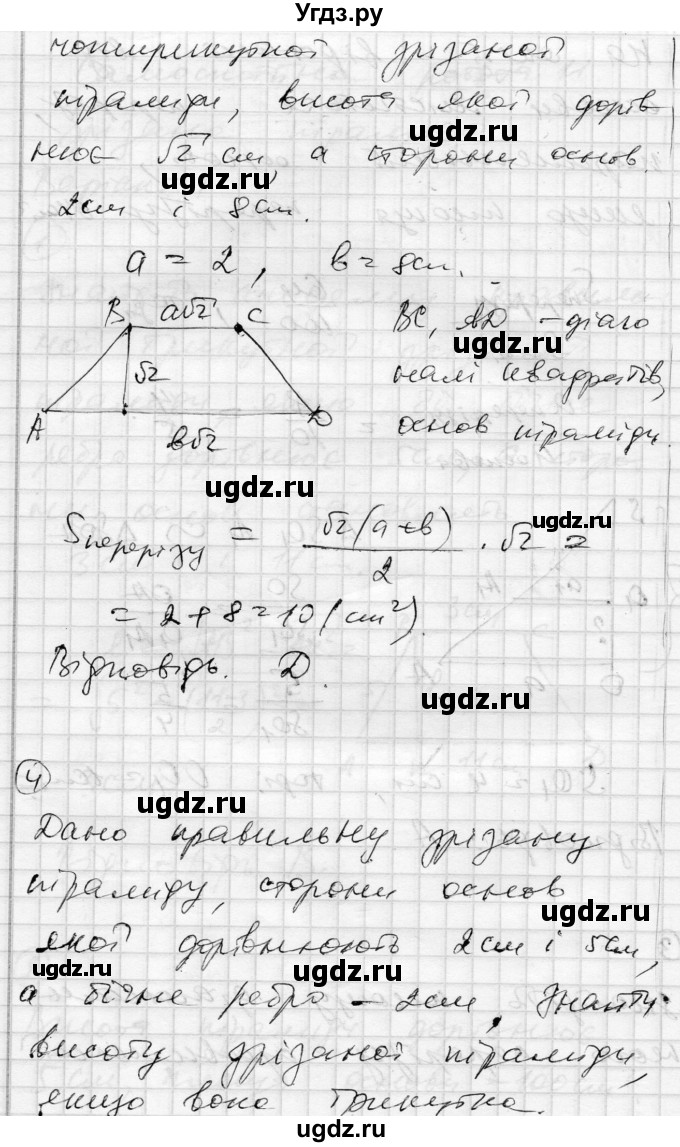 Угдз.ру
чотирикутної зрізаної
піраміди, висота якої дорів-
нює √2 см, а сторони основ
ugdz.ru
ugdz.ru
2см і 8см.
a = 2, b = 8см.
B a√2 C BC, AD – діаго
ugdz.ru
√2 налі квадратів,
A b√2 D основ піраміди.
ugdz.ru
ugdz.ru
Sперерізу = √2(a+b)/2 · √2 =
= 2 + 8 = 10 (см²).
ugdz.ru
Відповідь. D.
ugdz.ru
4
ugdz.ru
Дано правильну зрізану
піраміду, сторони основ
ugdz.ru
якої дорівнюють 2см і 5см,
ugdz.ru
а бічне ребро – 2см. Знайти
ugdz.ru
висоту зрізаної піраміди,
якщо вона трикутна.
ugdz.ru